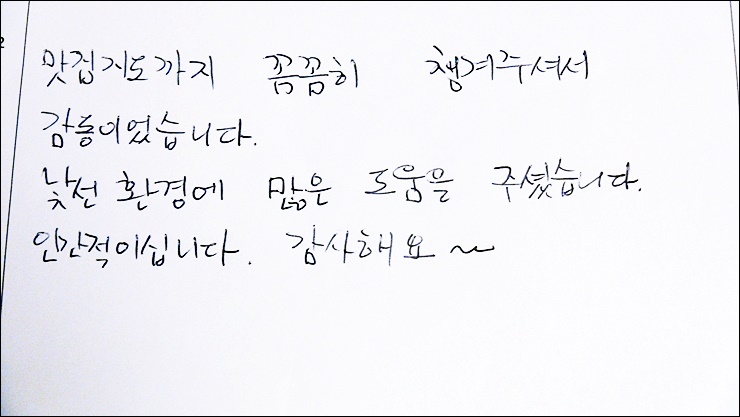 맛집지도까지 꼼꼼히 챙겨주셔서
감동이었습니다.
낯선 환경에 많은 도움을 주셨습니다.
인간적이십니다. 감사해요 ~